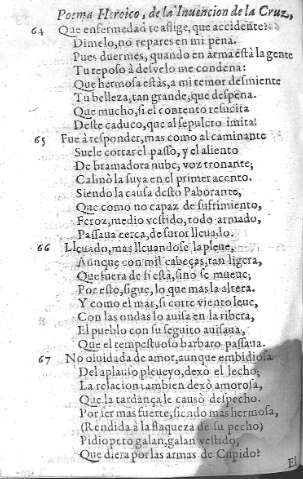 Poema Heroico, de la Invencion de la Cruz,
64 Que enfermedad te aflige, que accidente?
Dimelo, no repares en mi pena.
Pues duermes, quando en arma està la gente
Tu reposo à desvelo me condena:
Que hermosa estàs, a mi temor desmiente
Tu belleza, tan grande, que despena.
Que mucho, si el contento resucita
Deste caduco, que al sepulcro imita!
65 Fue à responder, mas como al caminante
Suele cortar el passo, y el aliento
De bramadora nube, voz tronante,
Calmò la suya en el primer acento.
Siendo la causa desto Paborante,
Que como no capaz de sufrimiento,
Feroz, medio vestido, todo armado,
Passava cerca, de furor llevado.
66 Llevado, mas llevandose la plebe,
Aunque con mil cabeças, tan ligera,
Que fuera de si està, si no se mueve,
Por esto, sigue, lo que mas la altera.
Y como el mar, si corre viento leve,
Con las ondas lo avisa en la ribera,
El pueblo con su seguito avisava,
Que el tempestuoso barbaro passava.
67 No olvidada de amor, aunque embidiosa
Del aplauso plebeyo, dexò el lecho;
La relacion tambien dexò amorosa,
Que la tardança le causò despecho.
Por ser mas fuerte, siendo mas hermosa,
(Rendida à la flaqueza de su pecho)
Pidio peto galan, galan vestido,
Que diera por las armas de Cupido?
El